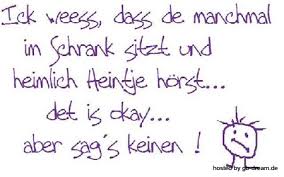 Ick weess, dass de manchmal
im Schrank sitzt und
heimlich Heintje hörst...
det is okay...
aber sag's keinen !
hosted by gb-dream.de